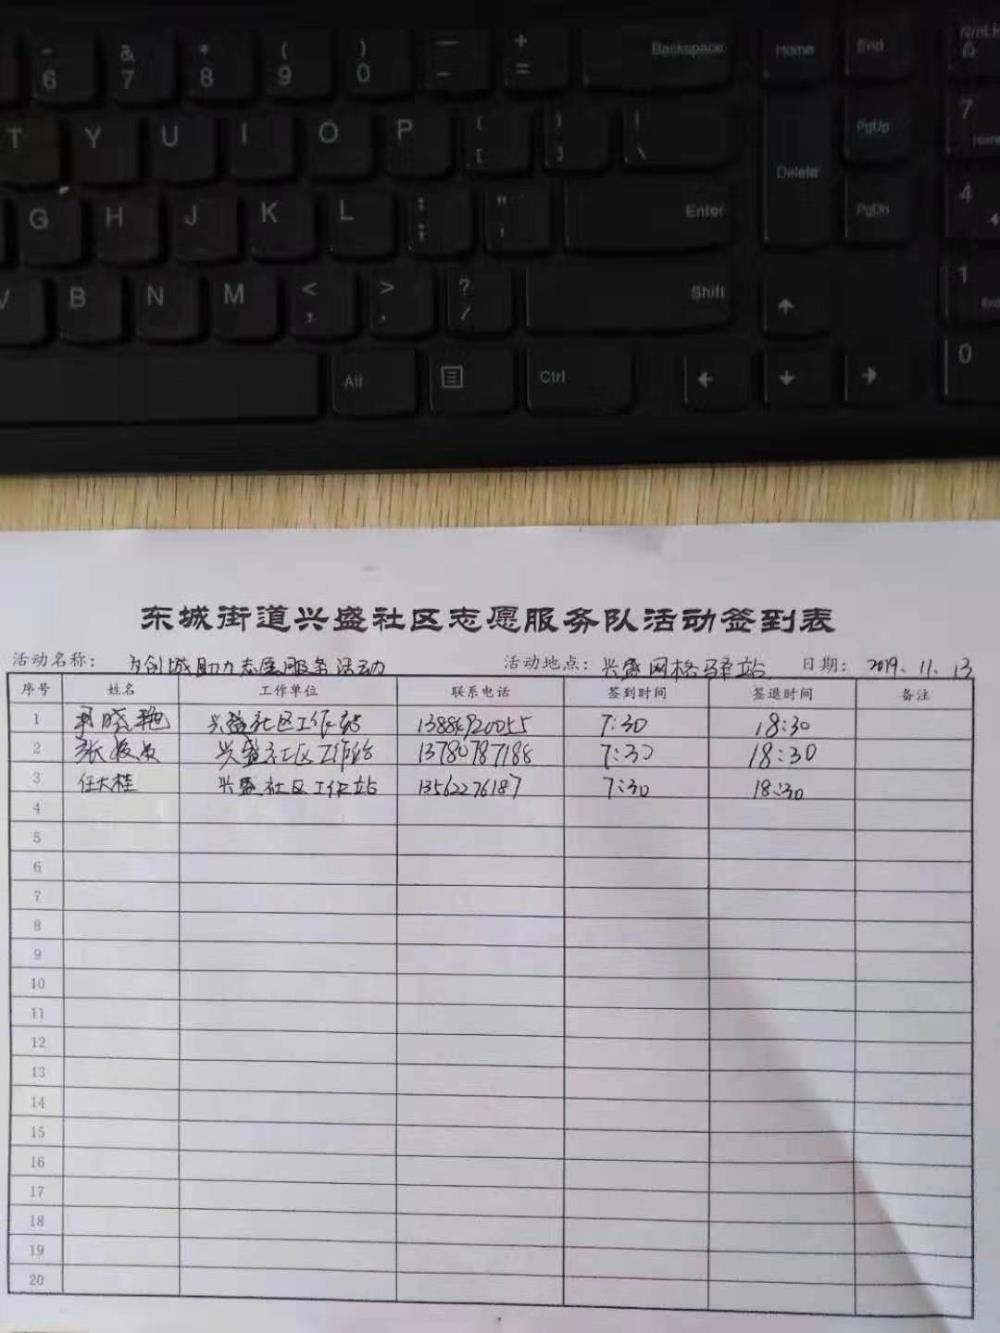 - 6 & 7 * 8 ( 9 ) 0 — - + = Backspace Home End NmLk
T Y U I O P { [ } ] | \ Delete PgUp 7
G H J K L : ; " ' Enter PgDn 4
V B N M < , > . ? / Shift ↑ 1
Alt Ctrl ← ↓ → 0
东城街道兴盛社区志愿服务队活动签到表
活动名称： 为创城助力志愿服务活动 活动地点：兴盛网格驿站 日期：2019.11.13
序号 姓名 工作单位 联系电话 签到时间 签退时间 备注
1 晓艳 兴盛社区工作站 7:30 18:30
2 张 兴盛社区工作站 13780787188 7:30 18:30
3 任大桂 兴盛社区工作站 13562276187 7:30 18:30
4
5
6
7
8
9
10
11
12
13
14
15
16
17
18
19
20